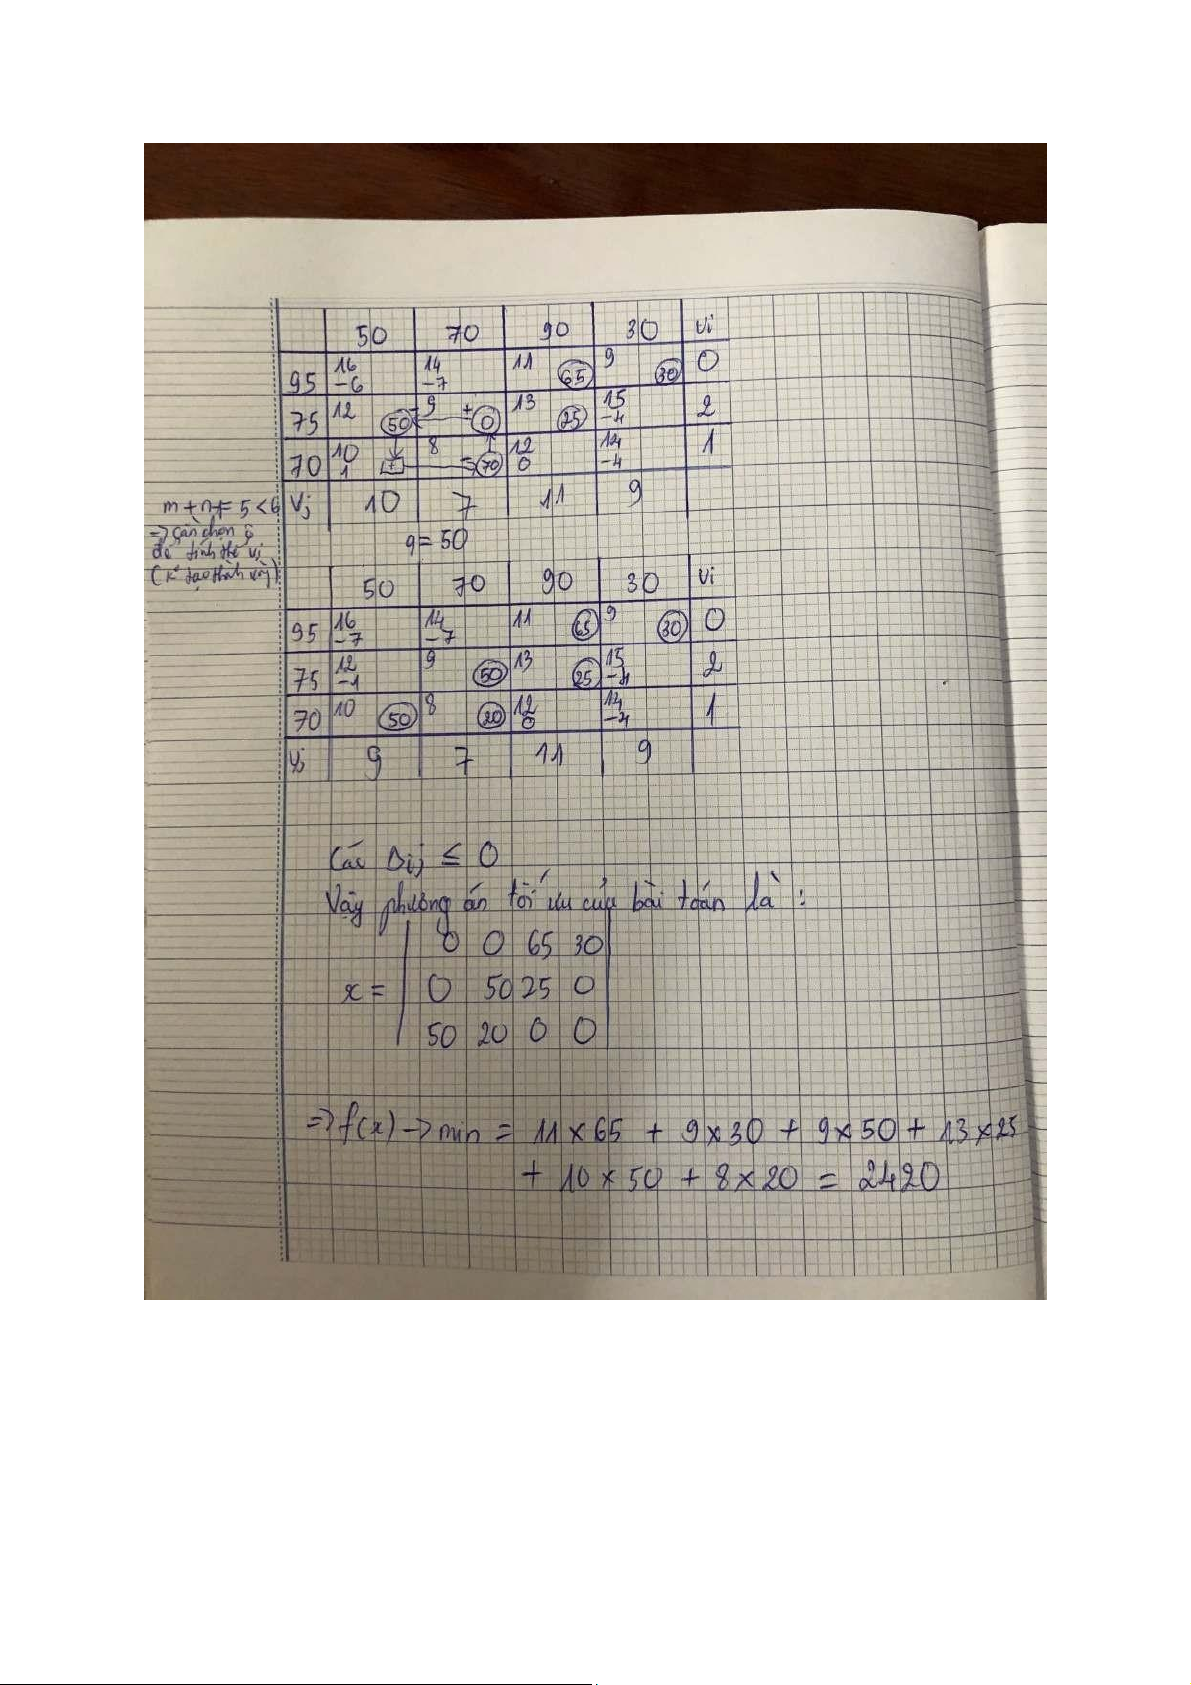 50 70 90 30 Ui
95 16 -6 14 -7 11 65 9 30 0
75 12 50 9 ± 0 13 25 15 -4 2
70 10 1 + 8 - 70 12 0 14 -4 1
Vj 10 7 11 9
m + n = 5 < 6
=> cần chọn ô
để tính thế vị
q = 50
50 70 90 30 Ui
95 16 -7 14 -7 11 65 9 30 0
75 12 -1 9 50 13 25 15 -4 2
70 10 50 8 20 12 0 14 -4 1
Vj 9 7 11 9
Các Δij ≤ 0
Vậy phương án tối ưu của bài toán là :
0 0 65 30
x = 0 50 25 0
50 20 0 0
=> f(x) -> min = 11 x 65 + 9 x 30 + 9 x 50 + 13 x 25
+ 10 x 50 + 8 x 20 = 2420